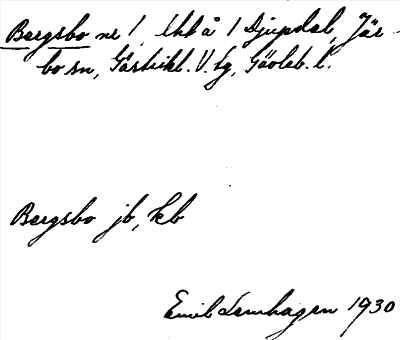 Bergsbo nr 1, lht å 1 Djupdal, Jär-
bo sn, Gästrikl. V. tg, Gävleb. l.
Bergsbo jb, kb
Emil Lemhagen 1930